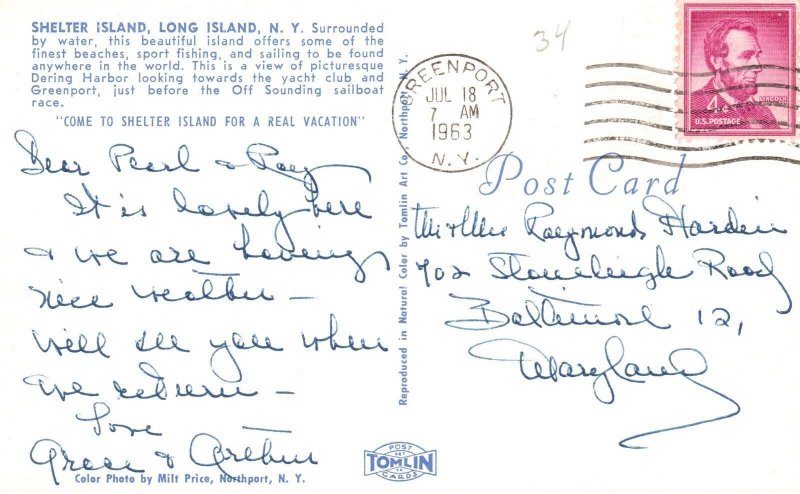 SHELTER ISLAND, LONG ISLAND, N. Y. Surrounded
by water, this beautiful island offers some of the
finest beaches, sport fishing, and sailing to be found
anywhere in the world. This is a view of picturesque
Dering Harbor looking towards the yacht club and
Greenport, just before the Off Sounding sailboat
race.
"COME TO SHELTER ISLAND FOR A REAL VACATION"
Dear Pearl & Ray
It is lovely here
& we are having
nice weather –
will see you when
we return –
Love
Grace & Arthur
Color Photo by Milt Price, Northport, N. Y.
Reproduced in Natural Color by Tomlin Art Co., Northport, N. Y.
POST
ART
TOMLIN
CARDS
34
GREENPORT
JUL 18
7 AM
1963
N. Y.
LINCOLN
U.S. POSTAGE
Post Card
Mr & Mrs Raymond Hardin
702 Stoneleigh Road
Baltimore 12,
Maryland